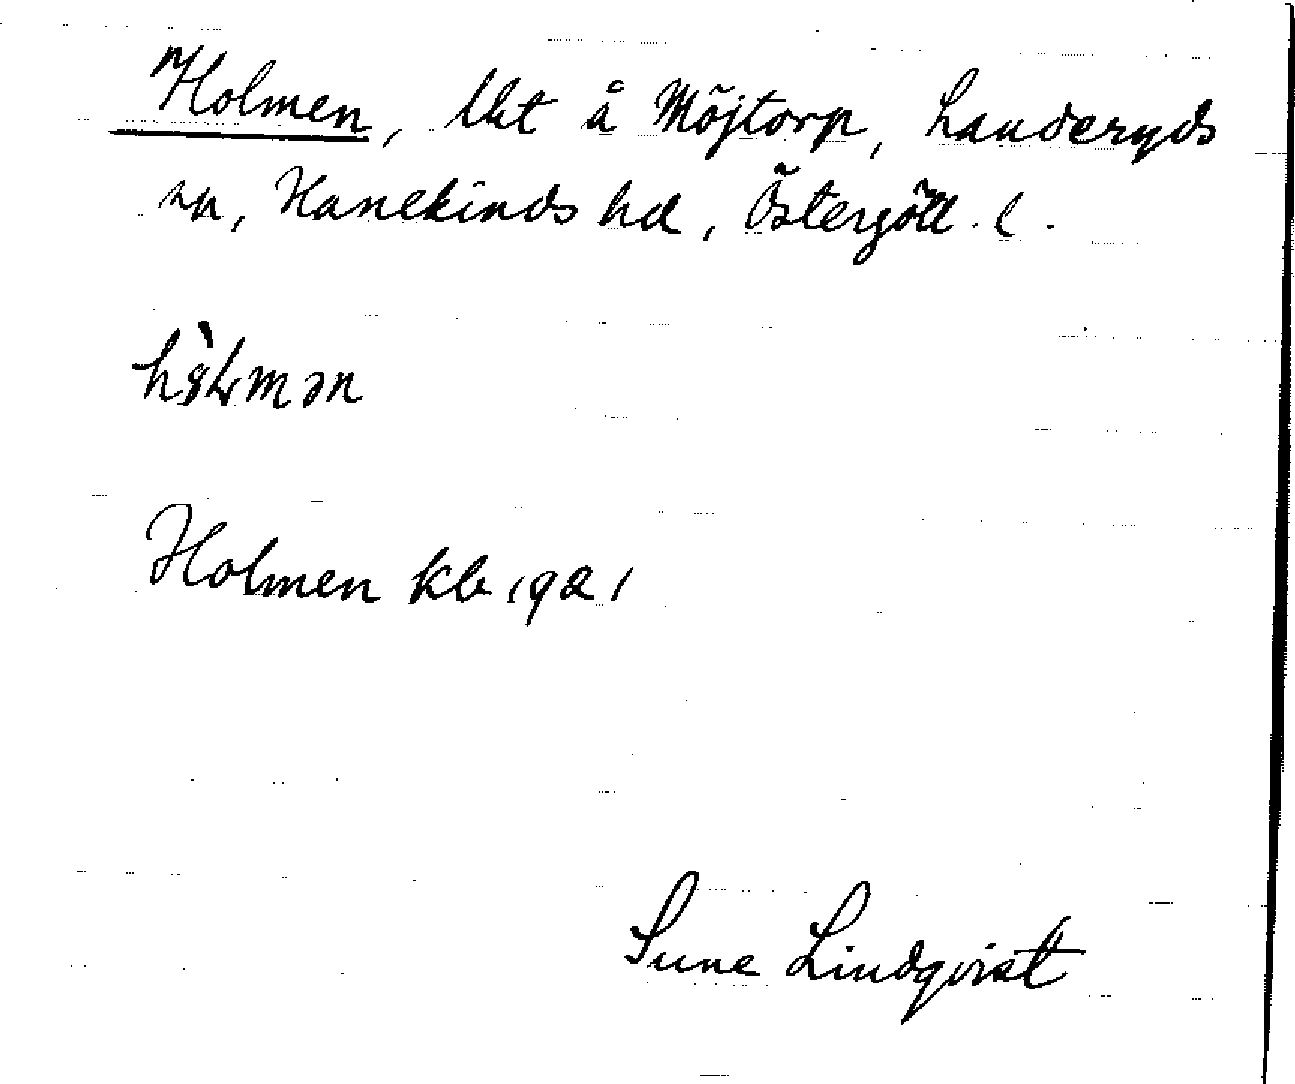 Holmen, lht å Möjtorp, Landeryds
sn, Hanekinds hd, Östergötl. l.
Holmen kb 1921
Sune Lindqvist